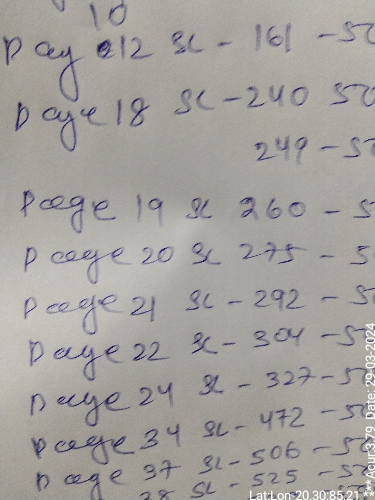 10
Page 12 SL - 161 - 50
Page 18 SL - 240 50
249 - 50
Page 19 SL 260 - 5
Page 20 SL 275 - 5
Page 21 SL - 292 - 50
Page 22 SL - 304 - 50
Page 24 SL - 327 - 50
Page 34 SL - 472 - 50
Page 37 SL - 506 - 50
38 SL - 525 - 50
Lat:Lon-20.30:85.21
***Acur:3.79 Date: 29-03-2024